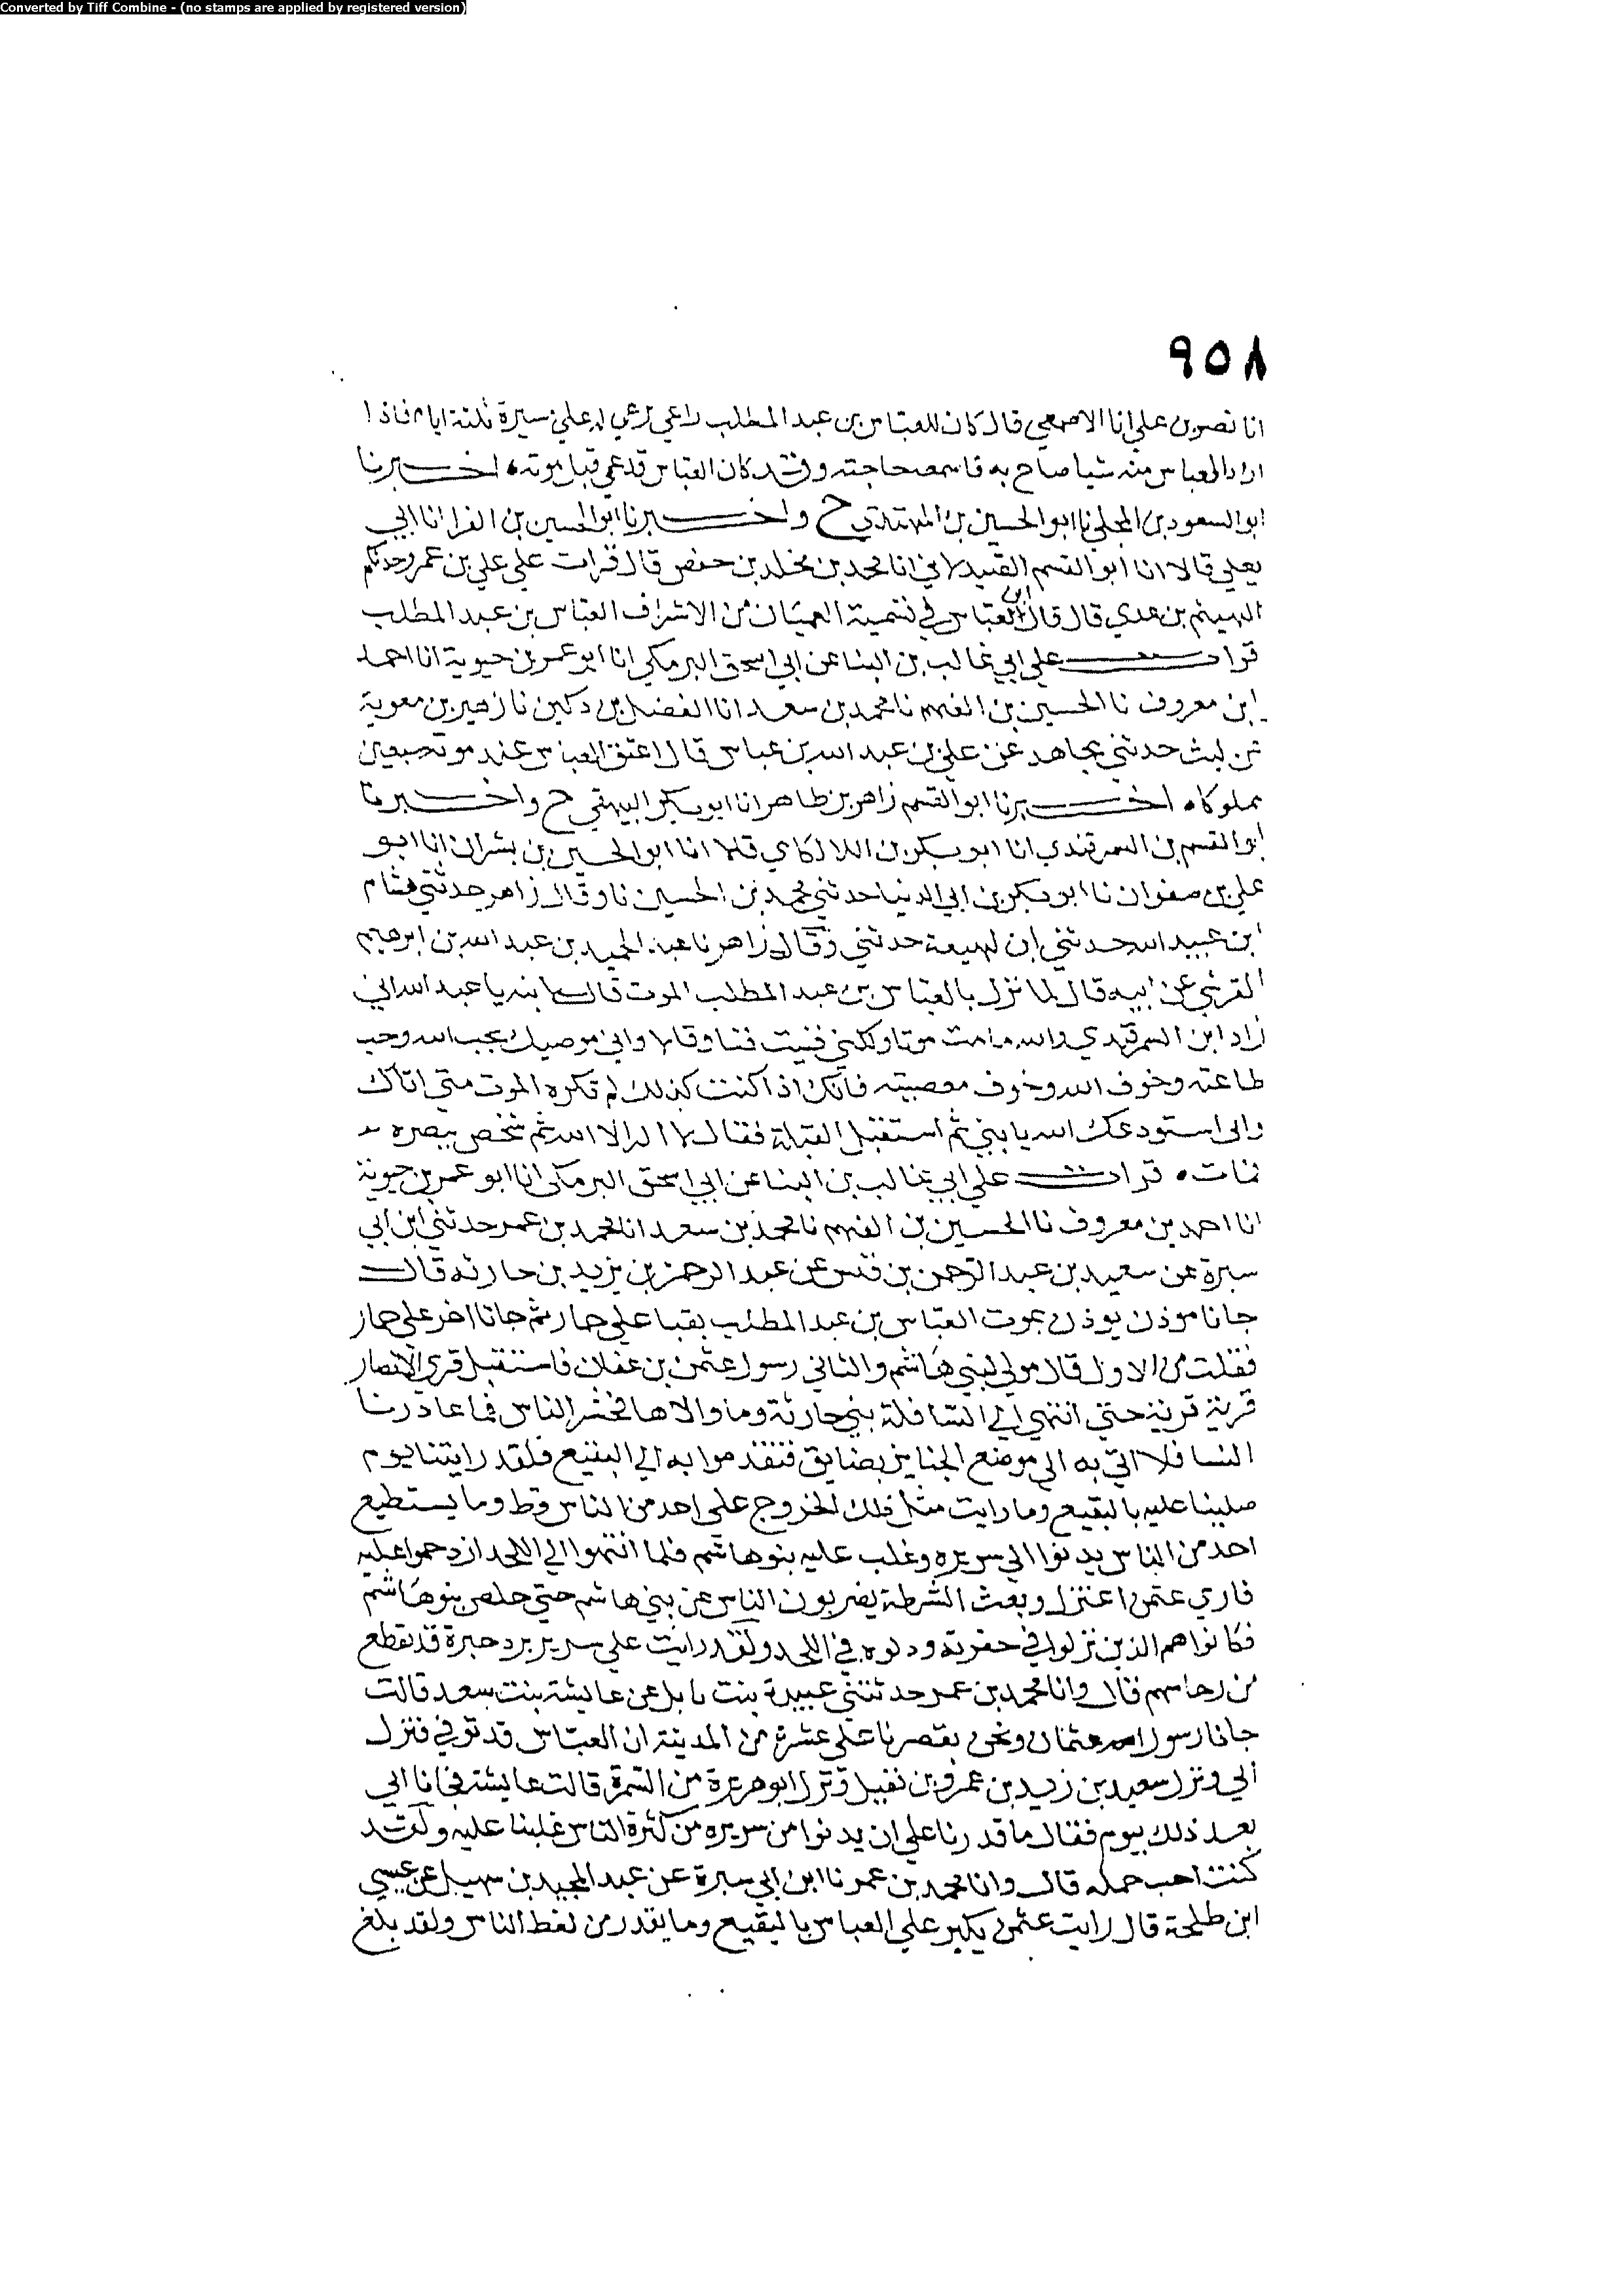 Converted by Tiff Combine - (no stamps are applied by registered version)
٩٥٨
انا نصر بن علي انا الاصمعي قال كان للعباس بن عبد المطلب راعي يرعي له علي سيرة ثلثة ايام فاذا
اراد العباس منه شيا صاح به فاسمعه حاجته وقد كان العباس قد عمي قبل موته اخبرنا
ابو السعود بن المجلي نا ابو الحسين بن المهتدي ح واخبرنا ابو الحسين بن الفرا انا ابي
يعلي قالا انا ابو القسم الصيدلاني انا محمد بن مخلد بن حفص قال قرات علي علي بن عمرو حدثكم
الهيثم بن عدي قال قال ابن العباس في تسمية العميان من الاشراف العباس بن عبد المطلب
قرات علي ابي غالب بن البنا عن ابي اسحق البرمكي انا ابو عمر بن حيوية انا احمد
ابن معروف نا الحسين بن الفهم نا محمد بن سعد انا الفضل بن دكين نا زهير بن معوية
عن ليث حدثني مجاهد عن علي بن عبد الله بن عباس قال اعتق العباس عند موته سبعين
مملوكا اخبرنا ابو القسم زاهر بن طاهر انا ابو بكر البيهقي ح واخبرنا
ابو القسم بن السمرقندي انا ابو بكر بن اللالكاي قالا انا ابو الحسين بن بشران انا ابو
علي بن صفوان نا ابو بكر بن ابي الدنيا حدثني محمد بن الحسين نا وقال زاهر حدثني هشام
ابن عبيد الله حدثني ابن لهيعة حدثني وقال زاهر نا عبد الحميد بن عبد الله بن ابرهيم
القرشي عن ابيه قال لما نزل بالعباس بن عبد المطلب الموت قال لابنه يا عبد الله اني
زاد ابن السمرقندي والله ما مت موتا ولكني فنيت فنا وقالا واني موصيك بحب الله وحب
طاعته وخوف الله وخوف معصيته فانك اذا كنت كذلك لم تكره الموت متي اتاك
واني استودعك الله يا بني ثم استقبل القبلة فقال لا اله الا الله ثم شخص ببصره
فمات قرات علي ابي غالب بن البنا عن ابي اسحق البرمكي انا ابو عمر بن حيوية
انا احمد بن معروف نا الحسين بن الفهم نا محمد بن سعد انا محمد بن عمر حدثني ابن ابي
سبرة عن سعيد بن عبد الرحمن بن قيس عن عبد الرحمن بن يزيد بن حارثه قال
جانا موذن يوذن بموت العباس بن عبد المطلب بقبا علي حمار ثم جانا اخر علي حمار
فقلت من الاول قال مولي لبني هاشم والثاني رسول عثمن بن عفان فاستقبل قري الانصار
قرية قرية حتي انتهي الي السافلة بني حارثة وما والاها فحشر الناس فما غادرنا
النسا فلا اتي به الي موضع الجنايز بضايق فتقدموا به الي البقيع فلقد رايتنا يوم
صلينا عليه بالبقيع وما رايت مثل ذلك الخروج علي احد من الناس قط وما يستطيع
احد من الناس يدنوا الي سريره وغلب عليه بنو هاشم فلما انتهوا الي اللحد ازدحموا عليه
فاري عثمن اعتزل وبعث الشرطة يضربون الناس عن بني هاشم حتي خلص بنو هاشم
فكانوا هم الذين نزلوا في حفرته ودلوه في اللحد ولقد رايت علي سرير برد حبرة قد تقطع
من زحامهم قال وانا محمد بن عمر حدثتني عبيدة بنت نابل عن عايشة بنت سعد قالت
جانا رسول عثمان ونحن بقصرنا علي عشرة من المدينة ان العباس قد توفي فنزل
ابي ونزل سعيد بن زيد بن عمرو بن نفيل ونزل ابو هريرة من الشمرة قالت عايشة فجانا ابي
بعد ذلك بيوم فقال ما قدرنا علي ان يدنوا من سريره من كثرة الناس غلبنا عليه ولقد
كنت احب حمله قال وانا محمد بن عمر نا ابن ابي سبرة عن عبد المجيد بن سهيل عن عيسي
ابن طلحة قال رايت عثمن يكبر علي العباس بالبقيع وما يقدر من لغط الناس ولقد بلغ